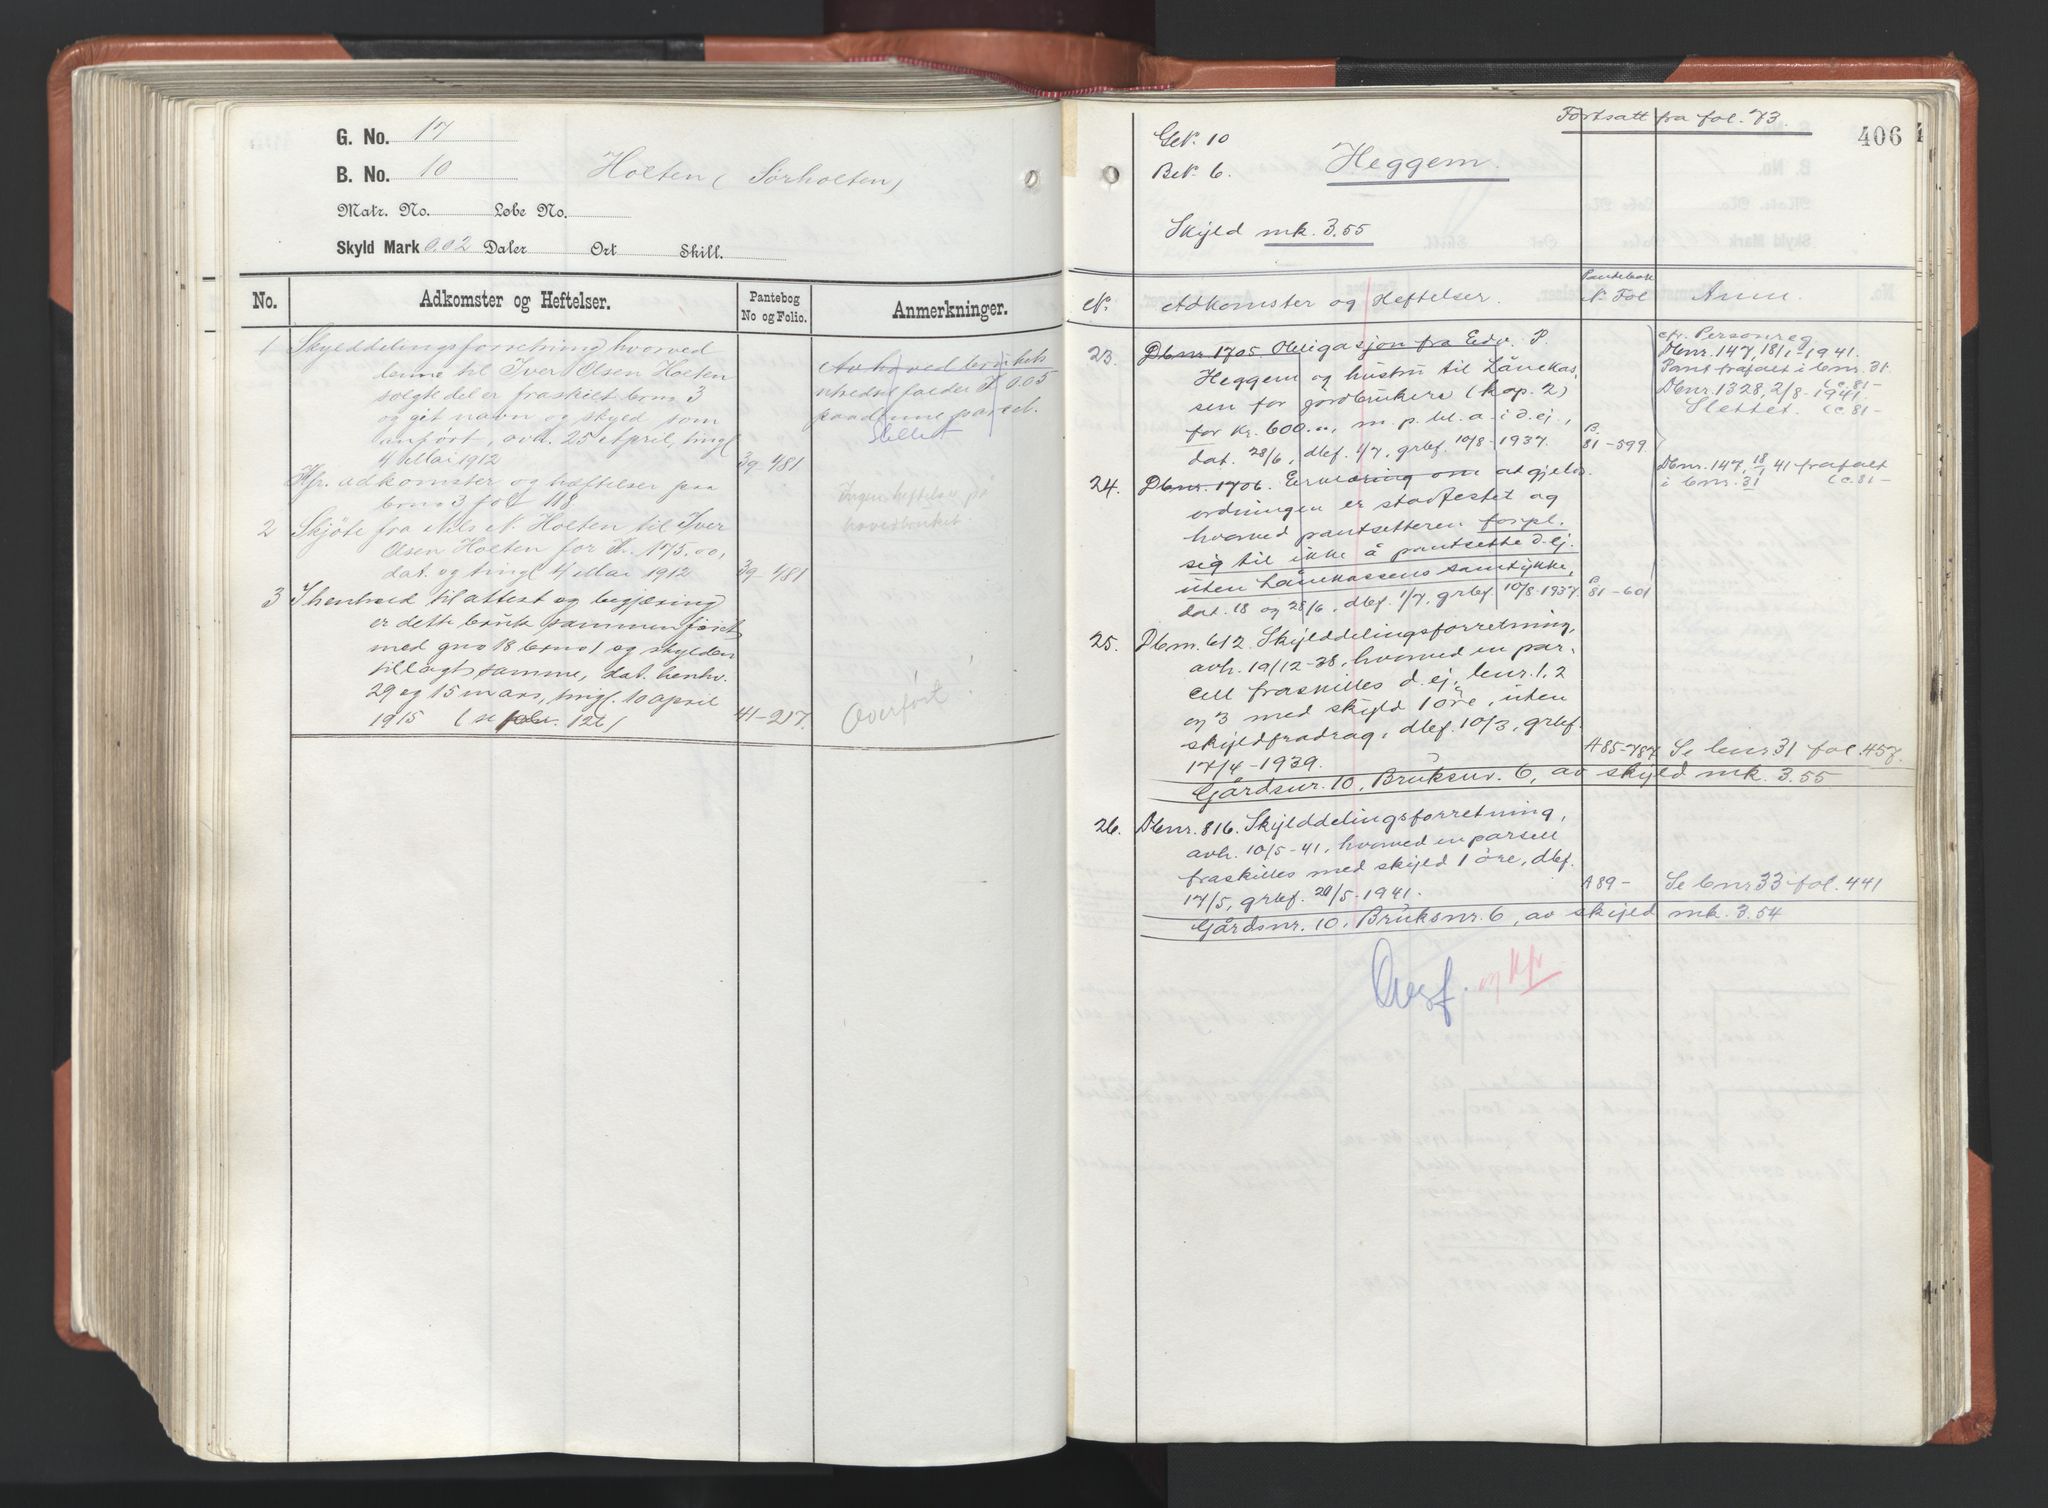 G. No. 17
B. No. 10 Holten (Sørholten)
Matr. No. Løbe No.
Skyld Mark 0.02 Daler Ort Skill.
No. Adkomster og Heftelser. Pantebog No og Folio. Anmerkninger.
1 Skylddelingsforretning hvorved
denne til Iver Olsen Holten
solgte del er fraskilt bno 3
og git navn og skyld som
anført, avh. 25 April, tingl
4 Mai 1912 39-481
Hfr. adkomster og hæftelser paa
bno 3 fol 118
2 Skjøte fra Nils N. Holten til Iver
Olsen Holten for Kr. 175.00,
dat. og tingl 4 Mai 1912 39-481
3 I henhold til attest og begjæring
er dette bruk sammenføiet
med gno 18 bno 1 og skylden
tillagt samme, dat. henhv.
29 og 15 mars, tingl. 10 april
1915 (se 126) 41-217.
Av hovedbrukets
nhedsfolder 0.05
paa denne parsel.
Slettet
Ingen heftelser på
hovedbruket.
Overført!
Fortsatt fra fol. 73.
406
GN. 10
BN. 6. Heggem.
Skyld mk. 3.55
N. Adkomster og Heftelser. Pantebok N. Fol Anm.
23. Dbnr. 1705. Obligasjon fra Edv. P.
Heggem og hustru til Lånekas-
sen for jordbrukere (kap. 2)
for kr. 600.00, m. p. bl. a. i d. ej.,
dat. 28/6, dbf. 1/7, grbf. 10/8-1937. P. 81-599
24. Dbnr. 1706. Erklæring om at gjelds-
ordningen er stadfestet og
hvorved pantsetteren forpl.
sig til ikke å pantsette d. ej.
uten Lånekassens samtykke,
dat. 18 og 28/6, dbf. 1/7, grbf. 10/8-1937. P. 81-601
25. Dbnr. 612. Skylddelingsforretning,
avh. 19/12-38, hvorved en par-
cell fraskilles d. ej., bnr. 1, 2
og 3 med skyld 1 øre, uten
skyldfradrag, dbf. 10/3, grbf.
17/4-1939. A 85-787 Se bnr 31 fol. 457.
Gårdsnr. 10, Bruksnr. 6, av skyld mk. 3.55
26. Dbnr. 816. Skylddelingsforretning,
avh. 10/5-41, hvorved en parsell
fraskilles med skyld 1 øre, dbf.
17/5, grbf. 20/5-1941. A 89- Se bnr 33 fol. 441
Gårdsnr. 10, Bruksnr. 6, av skyld mk. 3.54
Personreg
Dbnr. 147, 18/1-1941.
Pant frafalt i bnr. 31.
(C. 81-
Dbnr. 1328, 2/8-1941.
Slettet. (C. 81-
Dbnr. 147, 18/1 41 frafalt
i bnr. 31 (C. 81-
Overf. og kfr